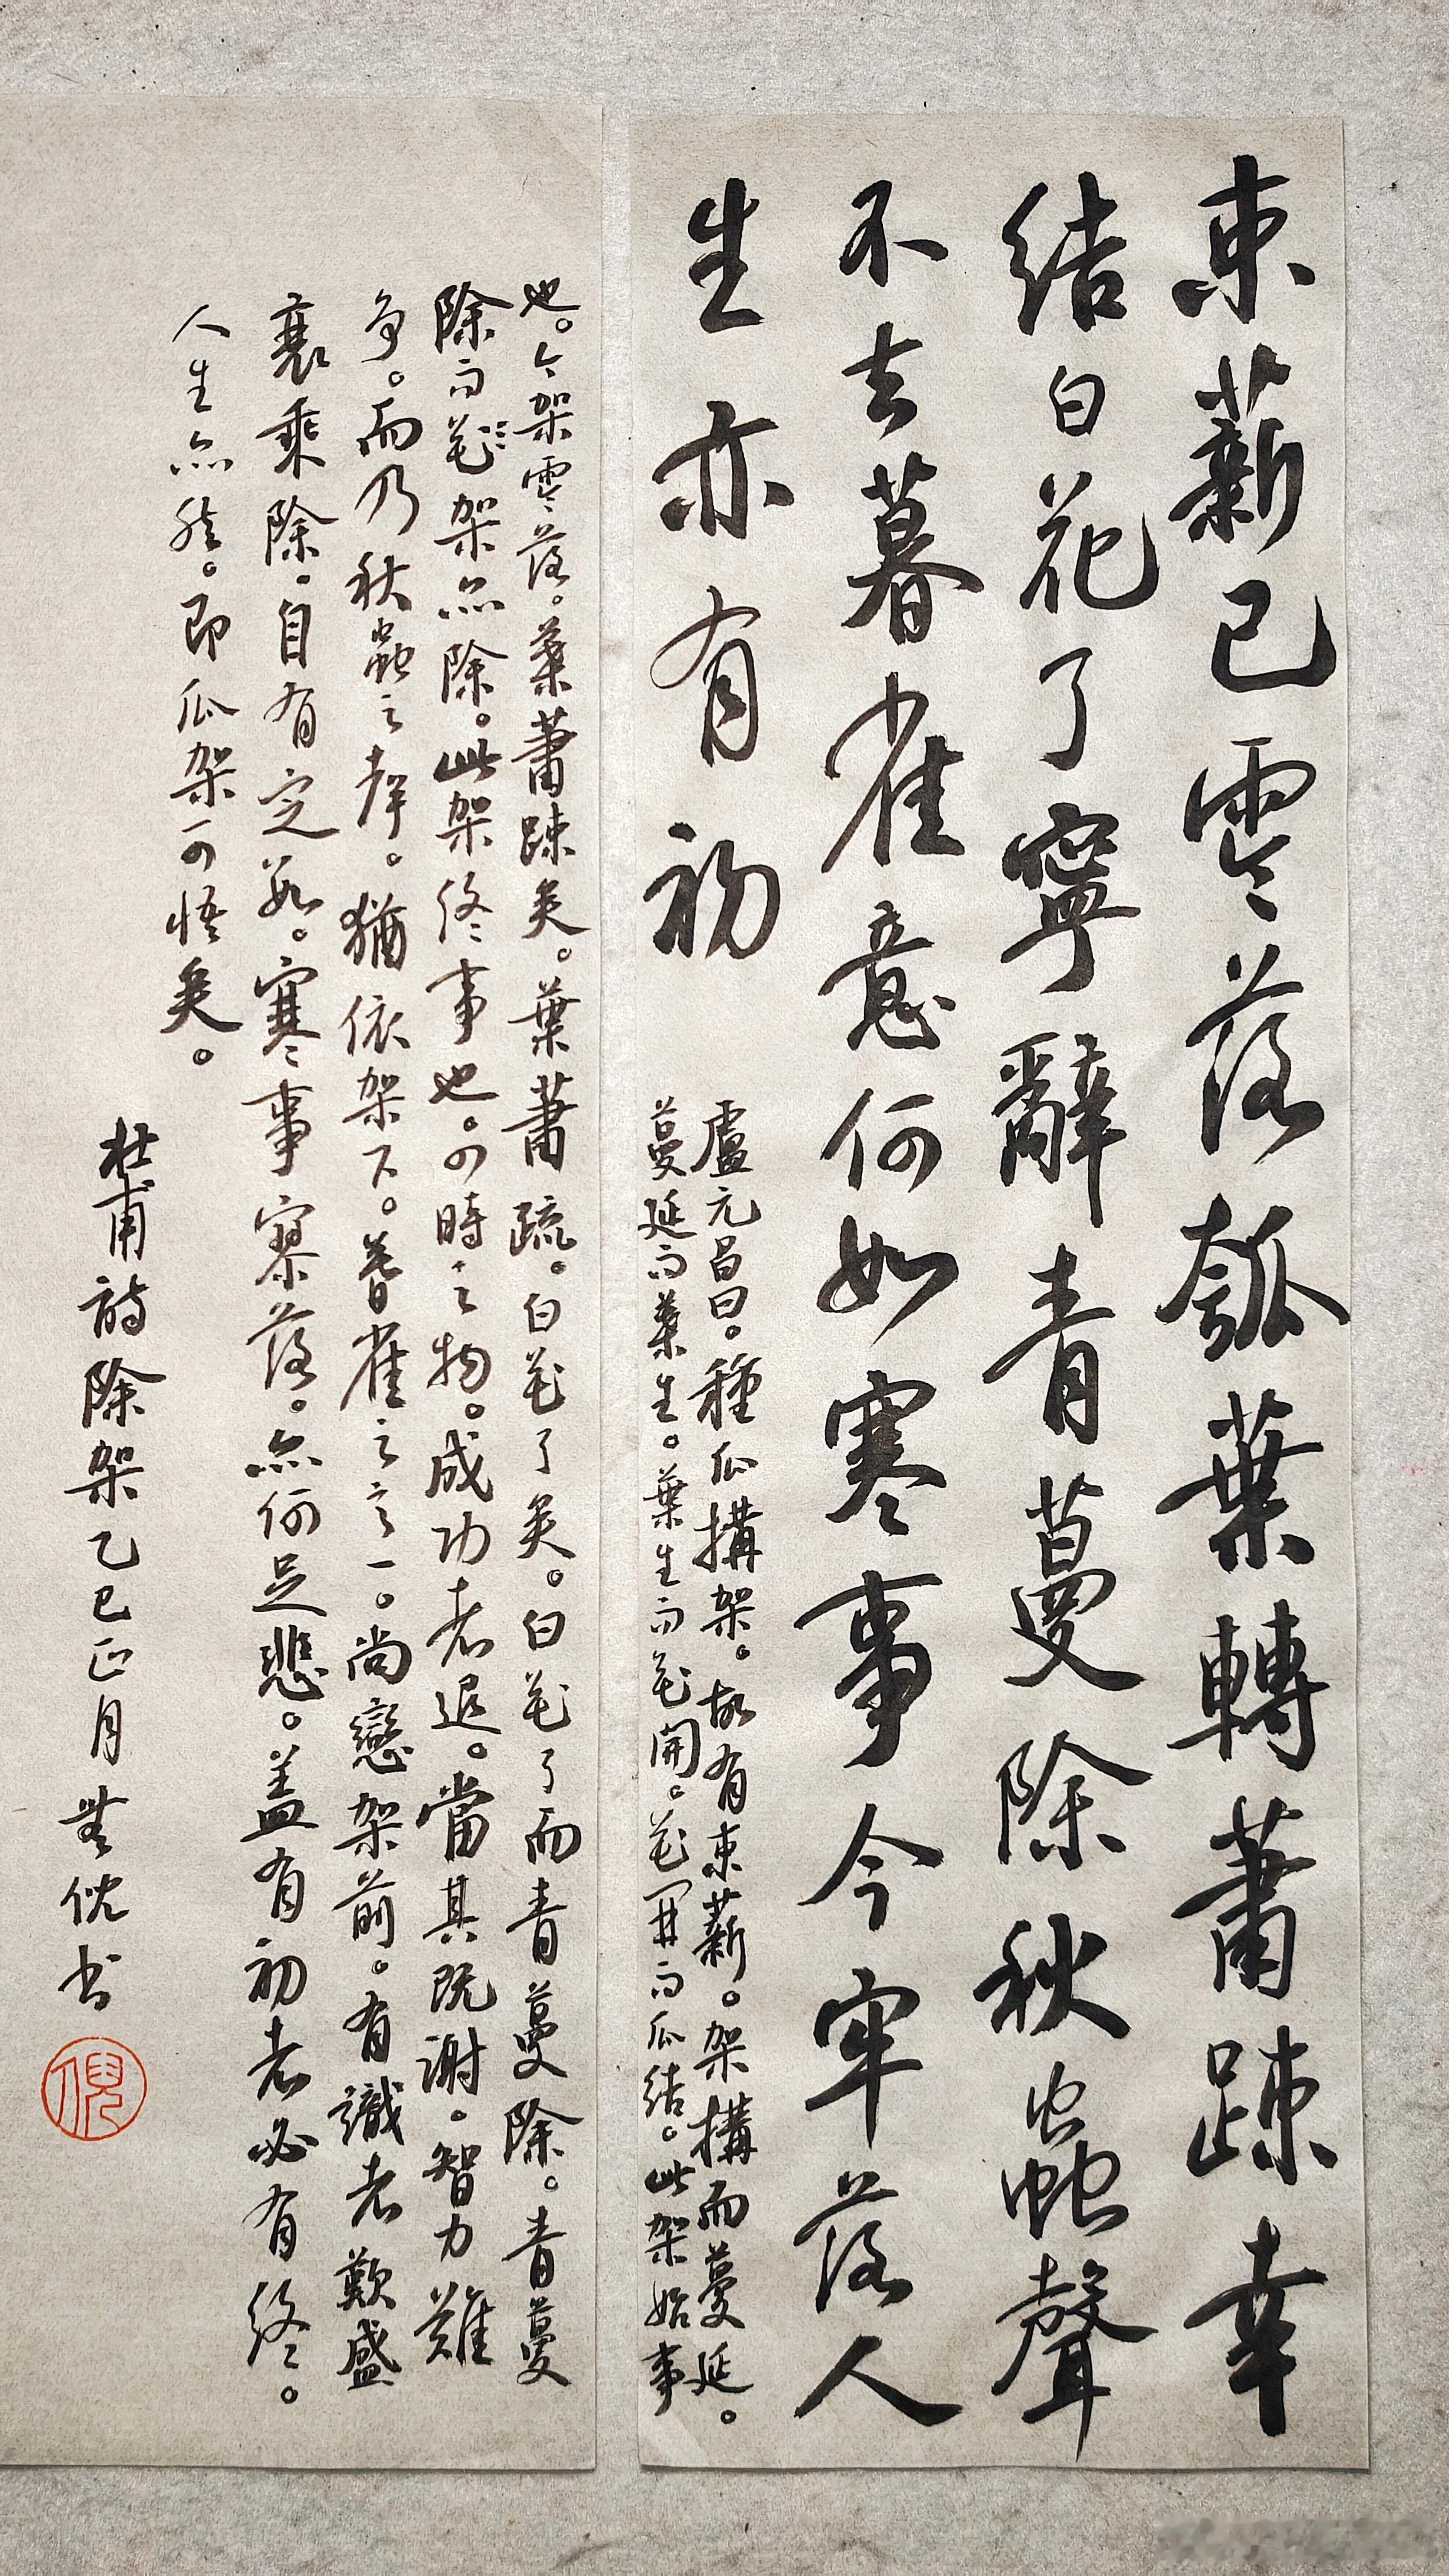 束薪已零落瓠葉轉蕭踈幸
結白花了寧辭青蔓除秋蟲聲
不去暮雀意何如寒事今牢落人
生亦有初
盧元昌曰。種瓜搆架。故有束薪。架搆而蔓延。
蔓延而葉生。葉生而花開。花開而瓜結。此架始事
也。今架零落。葉蕭踈矣。葉蕭疏。白花了矣。白花了而青蔓除。青蔓
除而花架亦除。此架終事也。可時之物。成功者退。當其既謝。智力難
争。而乃秋蟲之聲。猶依架下。暮雀之意。尚戀架前。有識者歎盛
衰乘除。自有定數。寒事寥落。亦何足悲。蓋有初者必有終。
人生亦然。即瓜架可悟矣。
杜甫詩除架乙巳正月無倪书
倪